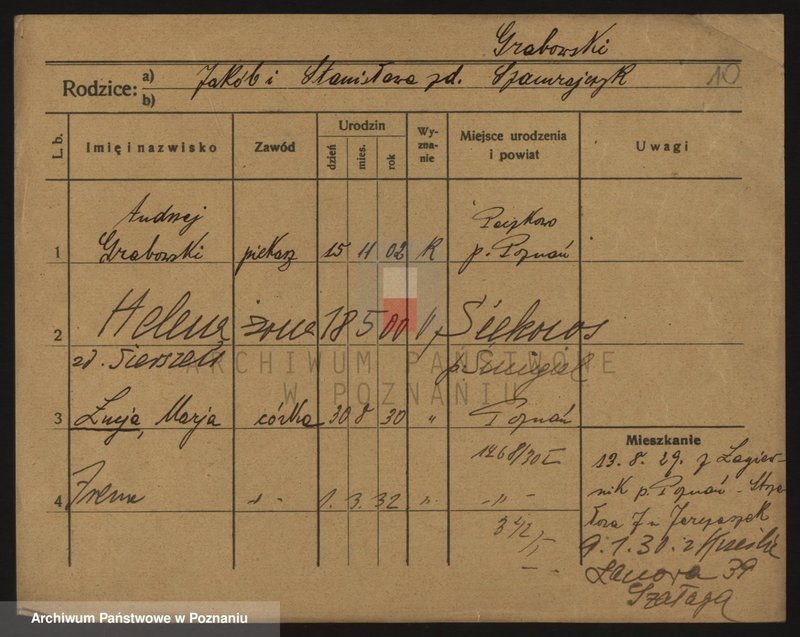 Grabowski
Rodzice: a) Jakób i Stanisława zd. Szamrajczyk
b)
10
L. b.
Imię i nazwisko
Zawód
Urodzin
dzień
mies.
rok
Wy-
zna-
nie
Miejsce urodzenia
i powiat
Uwagi
Andrzej Paczkowo
1 Grabowski piekarz 15 11 02 K p. Poznań
2 Helena żona 18 5 00 Siekowo
zd. p. Śmigiel
ARCHIWUM PAŃSTWOWE
W POZNANIU
3 Łucja, Marja córka 30 8 30 " Poznań
1768/30
4 Irena " - 1. 3. 32 " - " -
342/
Mieszkanie
13. 8. 29. z Łagiew-
nik p. Poznań - Strza
łowa 7 u
9. 1. 30. z
39
Szałaga
Archiwum Państwowe w Poznaniu